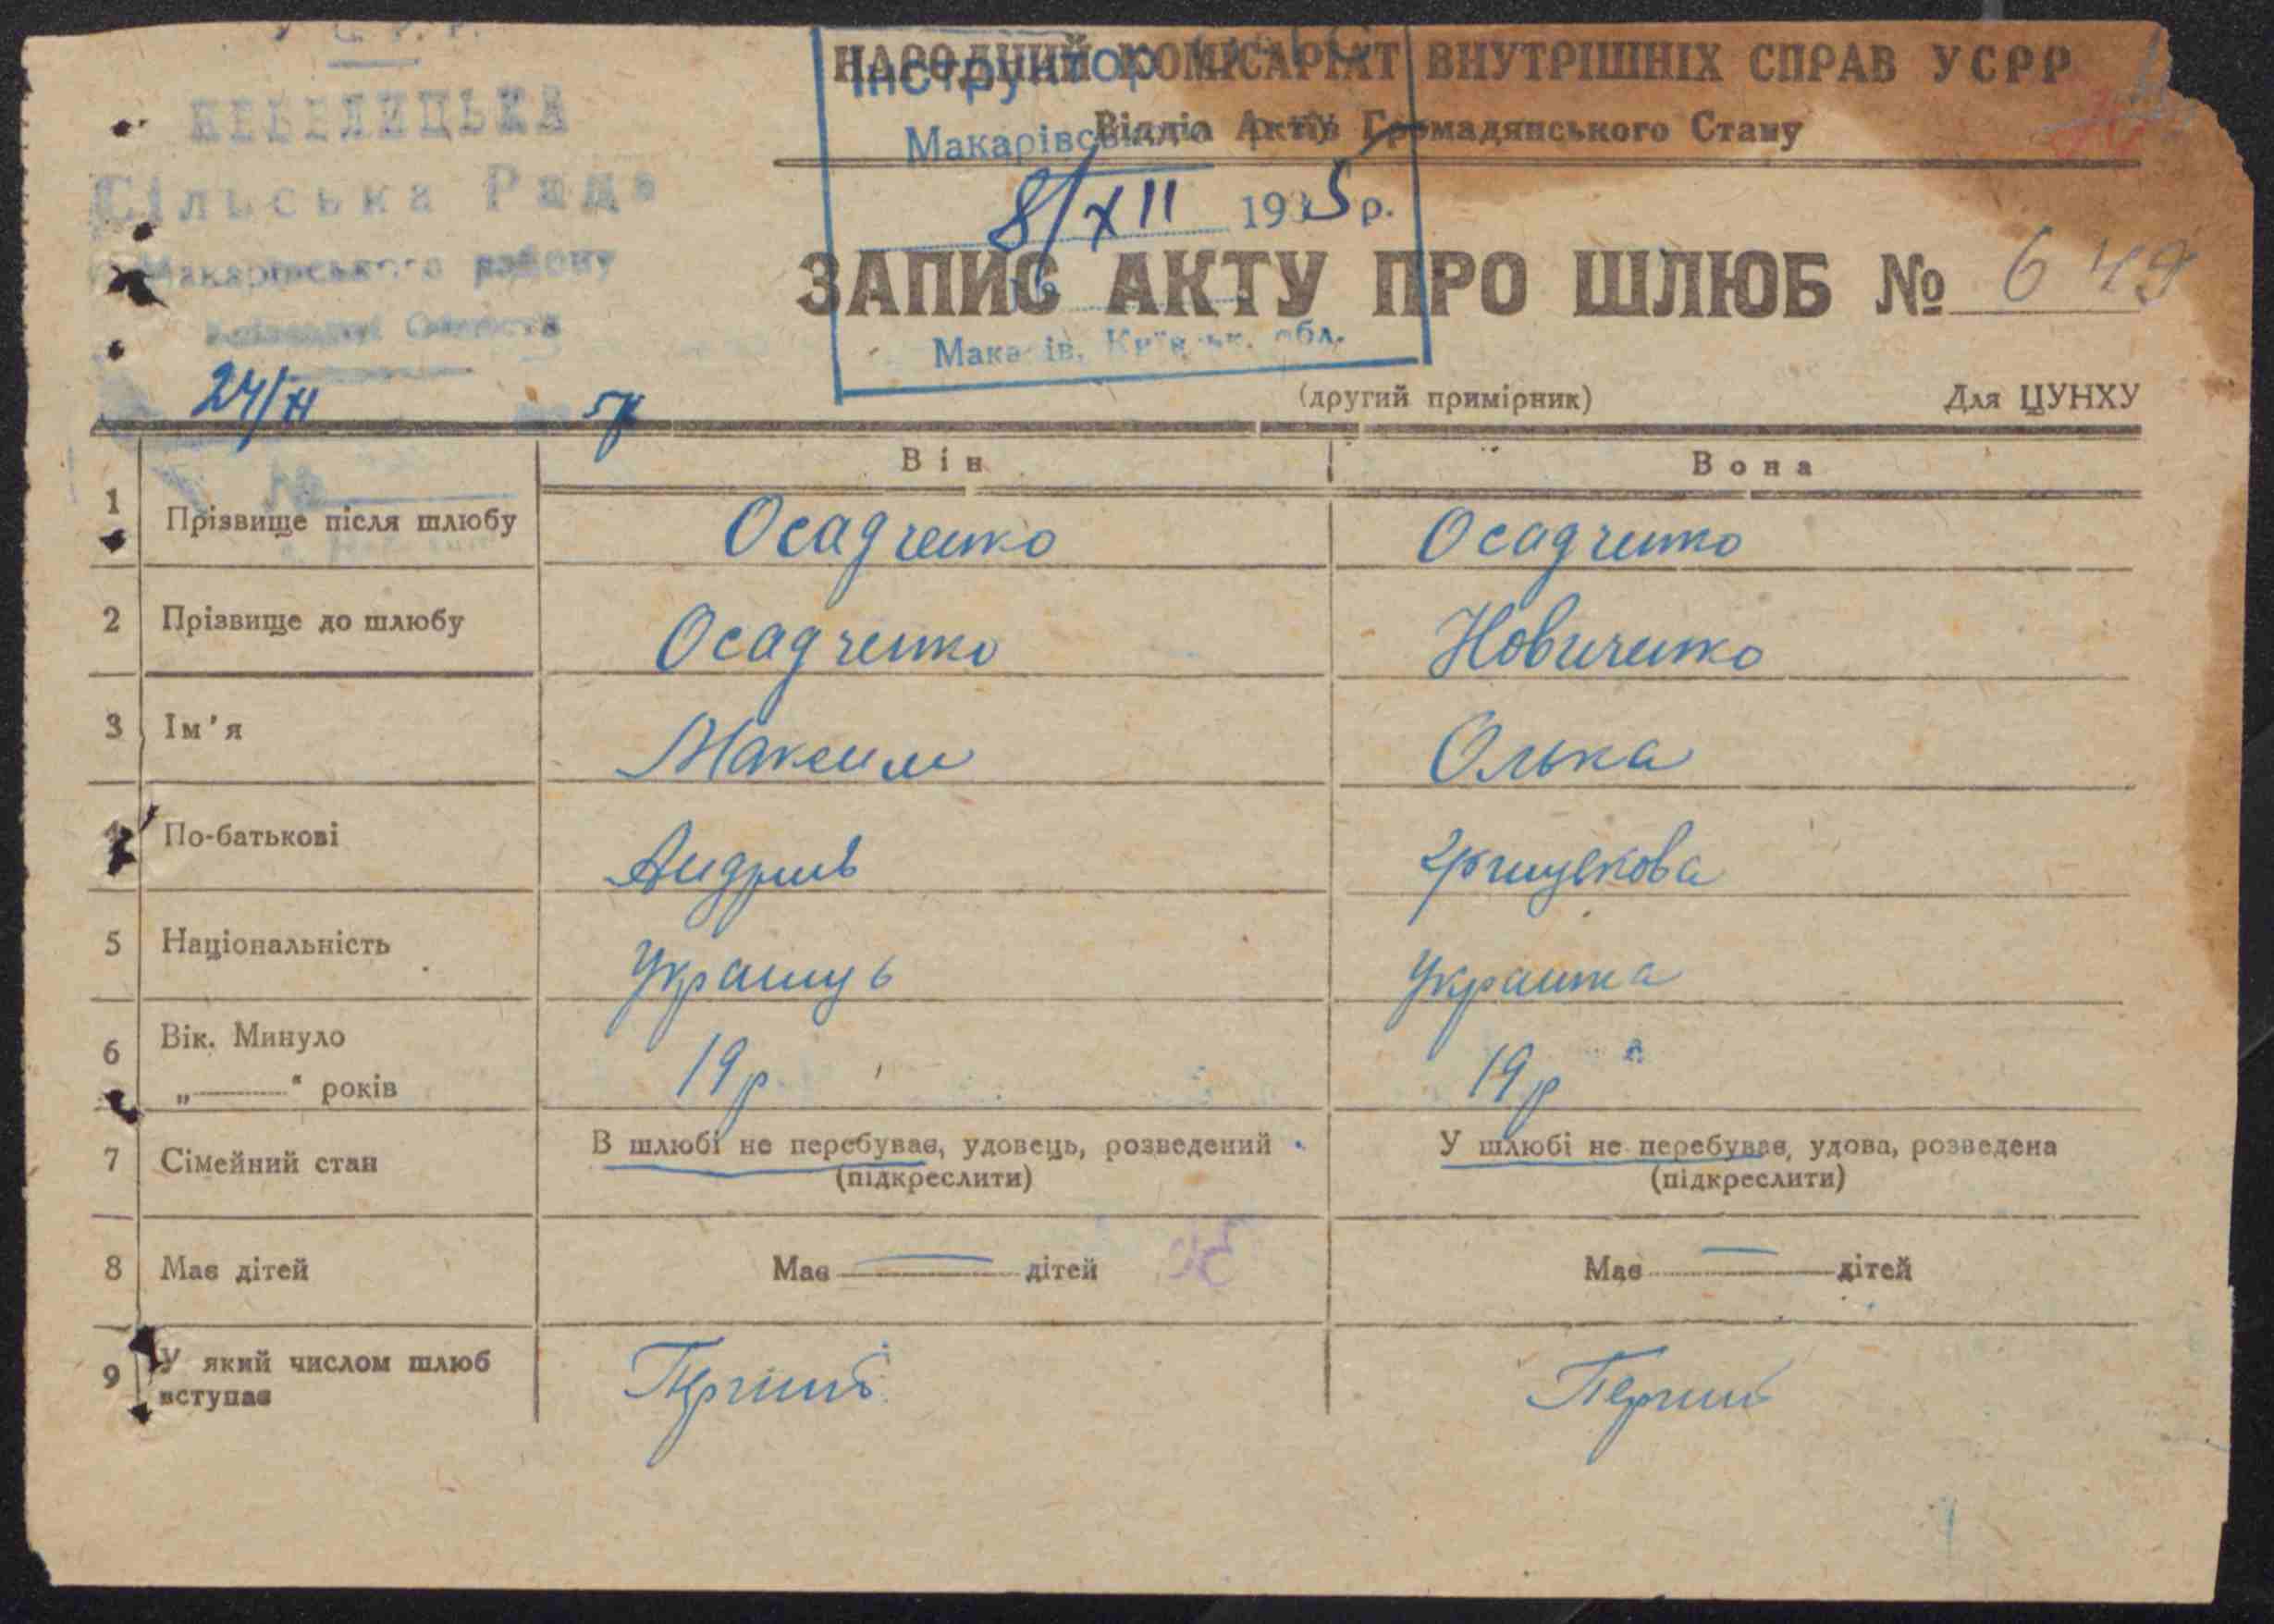 НЕБЕЛИЦЬКА
Сільська Рада
Макарівського району
Київської Области
24/XI 5р
НАРОДНИЙ КОМІСАРІАТ ВНУТРІШНІХ СПРАВ УСРР
Відділ Актів Громадянського Стану
Інструктор
Макарівського
8/XII 1935 р.
Макарів, Київськ. обл.
ЗАПИС АКТУ ПРО ШЛЮБ № 649
(другий примірник) Для ЦУНХУ
Він Вона
1 Прізвище після шлюбу Осадченко Осадченко
2 Прізвище до шлюбу Осадченко Новиченко
3 Ім'я Максим Олька
4 По-батькові Андрив Грицькова
5 Національність Українець Українка
6 Вік. Минуло
„——“ років 19р 19р
7 Сімейний стан В шлюбі не перебуває, удовець, розведений У шлюбі не перебуває, удова, розведена
(підкреслити) (підкреслити)
8 Має дітей Має — дітей Має — дітей
9 У який числом шлюб
вступає Перший Перший